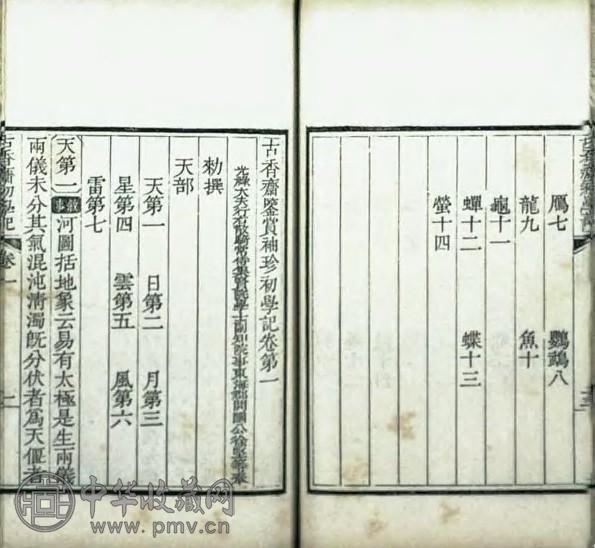 鴈七 鸚鵡八
龍九 魚十
龜十一
蟬十二 蝶十三
螢十四
古香齋鑒賞袖珍初學記卷第一
光祿大夫行右散騎常侍集賢院學士副知院事東海郡開國公徐堅等奉
勅撰
天部
天第一 日第二 月第三
星第四 雲第五 風第六
雷第七
天第一 敘事 河圖括地象云易有太極是生兩儀
兩儀未分其氣混沌清濁既分伏者為天偃者
古香齋初學記 卷一 一
中华收藏网
www.pmv.cn